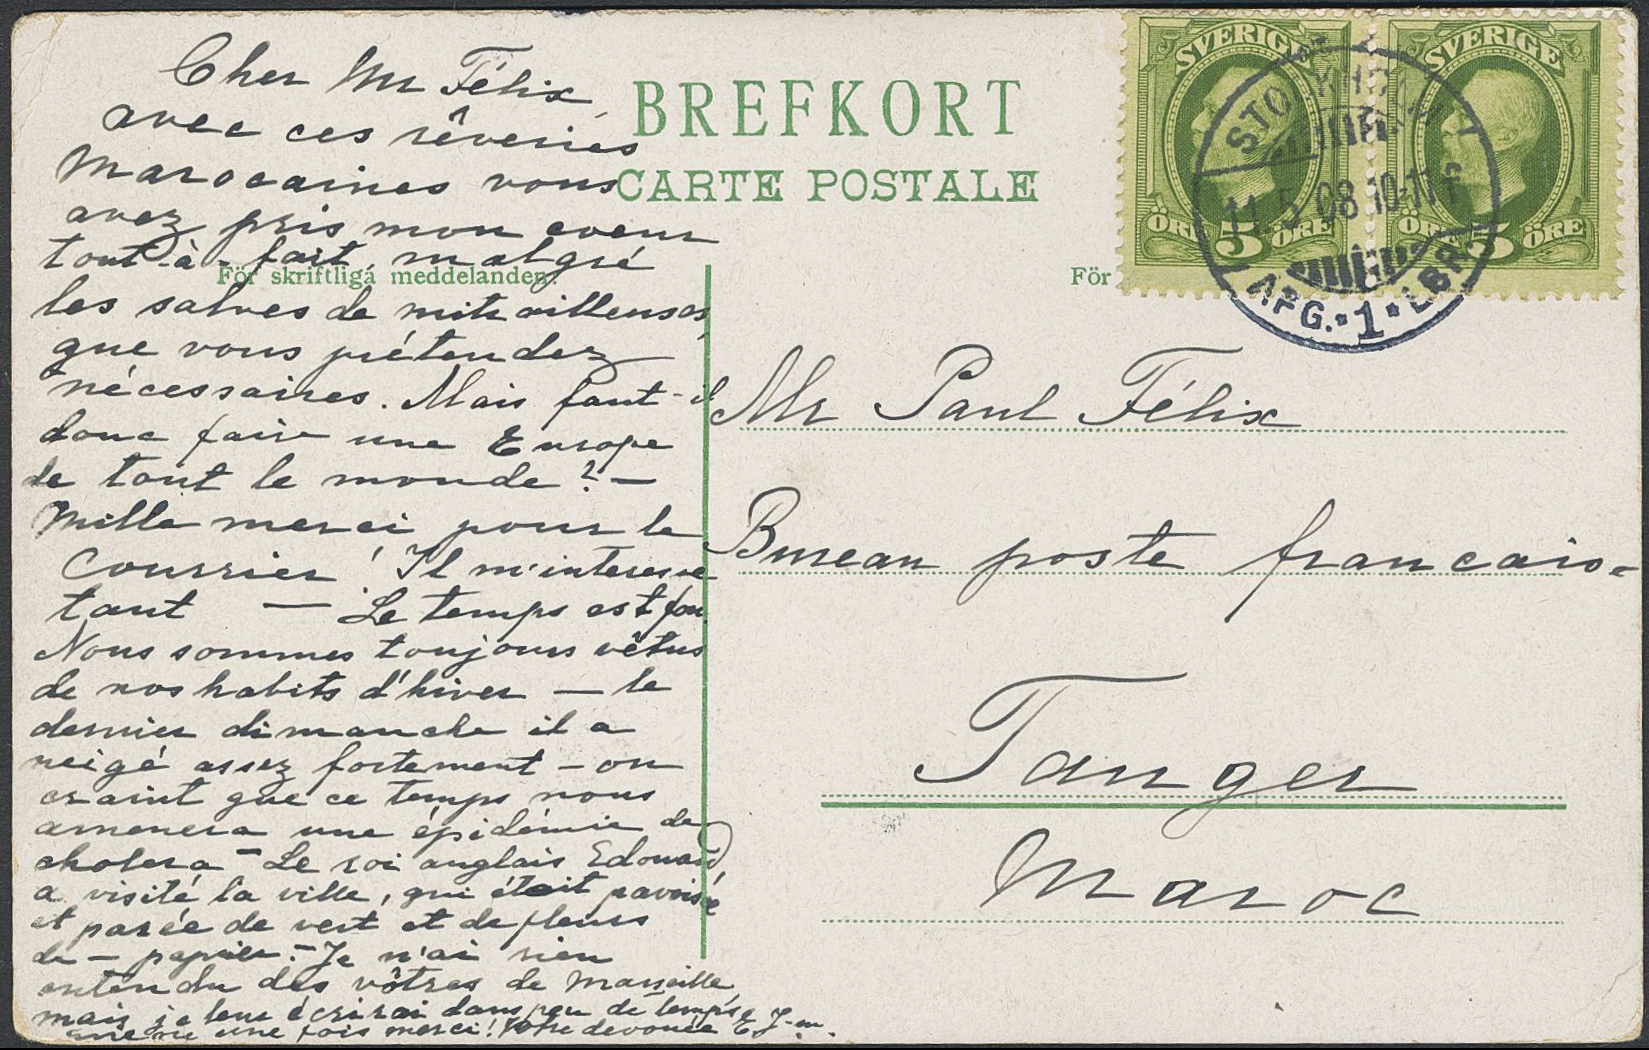 Cher Mr Félix,
avec ces rêveries
marocaines vous
avez pris mon coeur
tout-à-fait, malgré
les salves de mitrailleuses,
que vous prétendez
nécessaires. Mais faut-il
donc faire une Europe
de tout le monde? —
Mille merci pour le
courrier! Il m'interesse
tant — Le temps est fou.
Nous sommes toujours vêtus
de nos habits d'hiver — le
dernier dimanche il a
neigé assez fortement — on
craint que ce temps nous
amenera une épidémie de
cholera — Le roi anglais Edouard
a visité la ville, qui était pavoisée
et parée de vert et de fleurs
de — papier. — Je n'ai rien
entendu des vôtres de Marseille
mais je leur écrirai dans peu de temps.
une fois merci! Votre devouée E. J-m.
BREFKORT
CARTE POSTALE
För skriftliga meddelanden.
För
SVERIGE
ÖRE 5 ÖRE
SVERIGE
ÖRE 5 ÖRE
STOCKHOLM
11.5.08 10-11 F
AFG. * 1 * LBR.
Mr Paul Félix
Bureau poste francais-
Tanger
Maroc